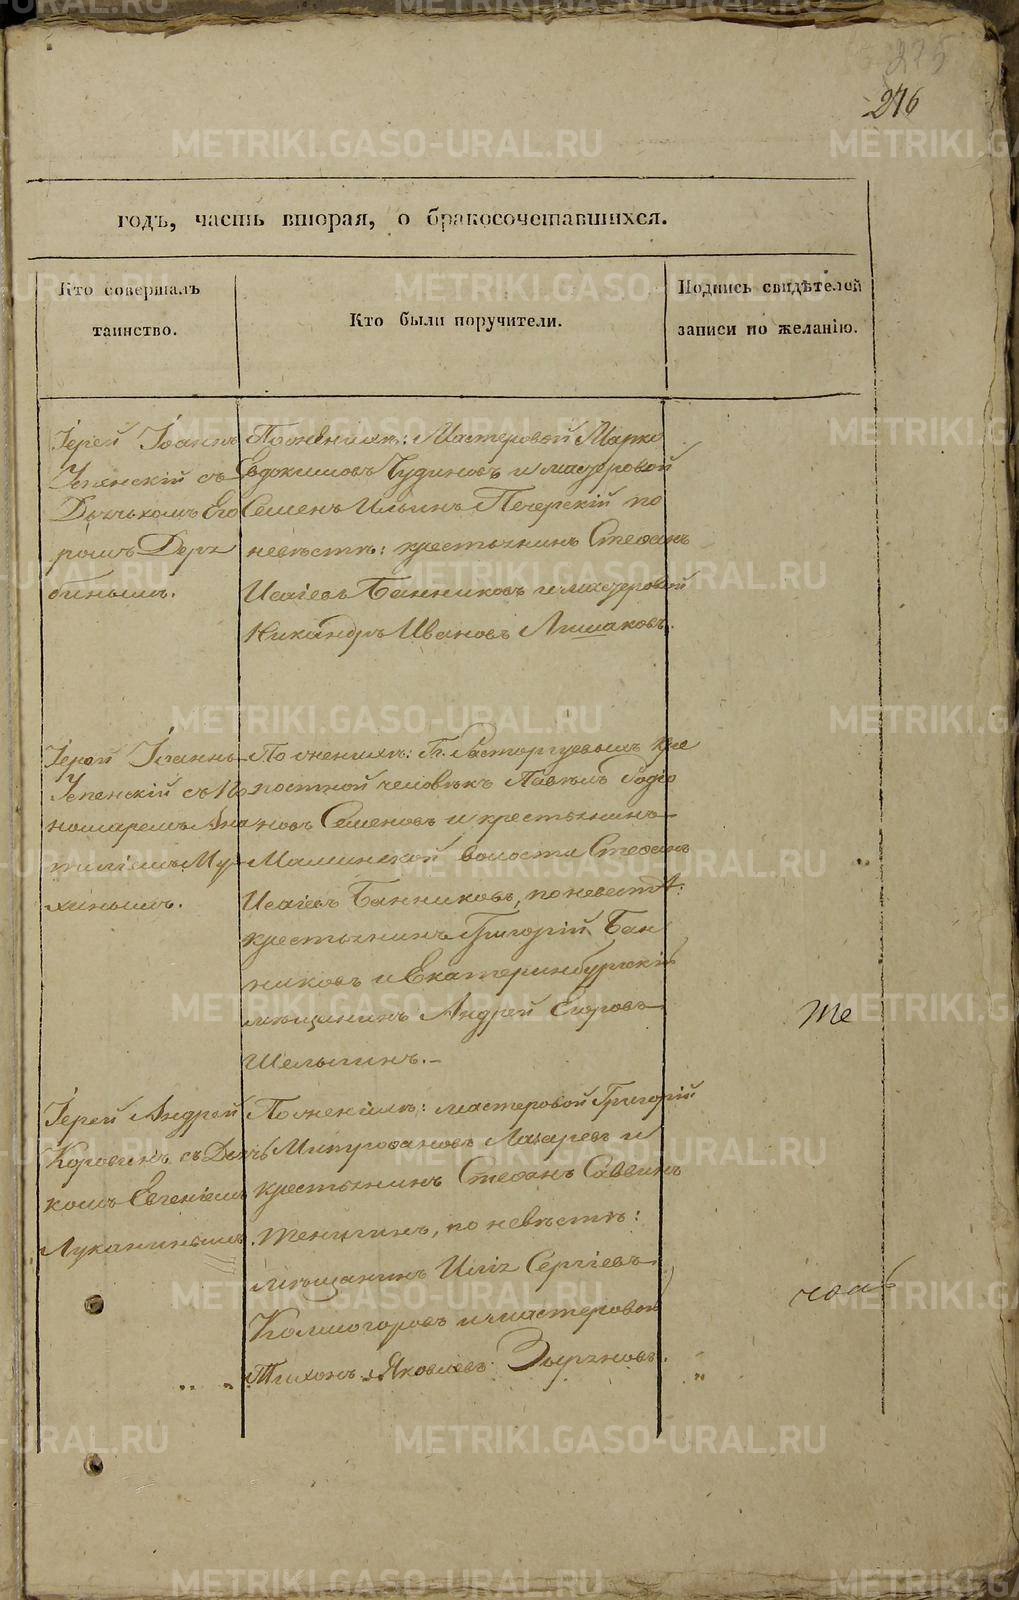 275
276
годъ, часть вторая, о бракосочетавшихся.
Кто совершалъ
таинство.
Кто были поручители.
Подпись свидѣтелей
записи по желанію.
Іерей Іоаннъ
Успенскій съ
Дьячкомъ Его
ромъ Деря
бинымъ.
По женихѣ: Мастеровой Марко
Евдокимовъ Чудиновъ и мастеровой
Семенъ Ильинъ Печерскій по
невѣстѣ: крестьянинъ Стефанъ
Исаіевъ Банниковъ и мастеровой
Никандръ Ивановъ Лишаковъ.
Іерей Іоаннъ
Успенскій съ По
номаремъ Ана
толіемъ Му
хинымъ.
По женихѣ: Г. Расторгуевыхъ кре
постной человѣкъ Павелъ Родіо
новъ Семеновъ и крестьянинъ
Маминской волости Стефанъ
Исаіевъ Банниковъ, по невестѣ:
крестьянинъ Григорій Бан
никовъ и Екатеринбургскій
мѣщанинъ Андрей Егоровъ
Шельминъ.
Іерей Андрей
Коровинъ съ Дьяч
комъ Евгеніемъ
Луканинымъ.
По женихѣ: мастеровой Григорій
Митрофановъ Лазаревъ и
крестьянинъ Стефанъ Саввинъ
по невѣстѣ:
мѣщанинъ Илія Сергіевъ
Колмогоровъ и мастеровой
Тихонъ Яковлевъ Зыряновъ.
те
METRIKI.GASO-URAL.RU